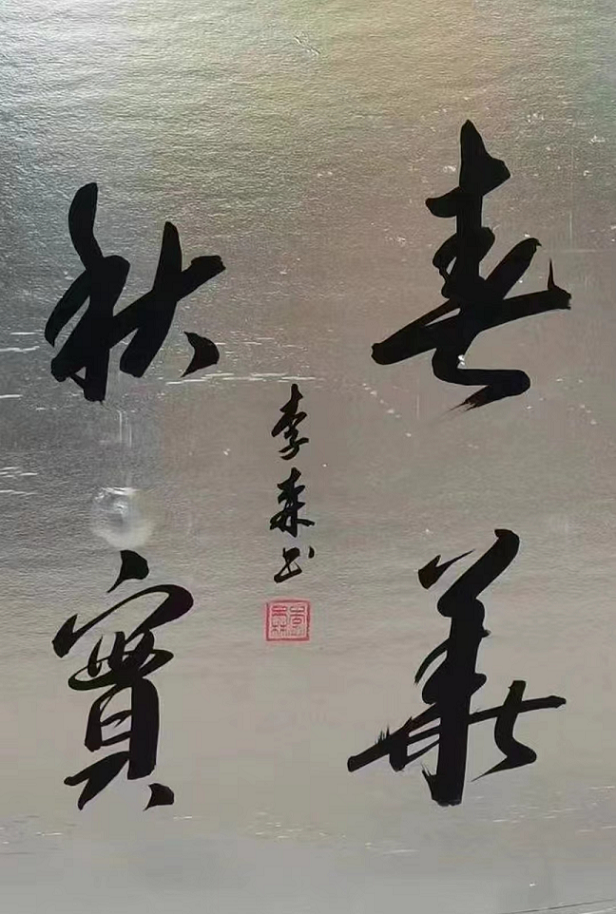 春華
秋實
李森书